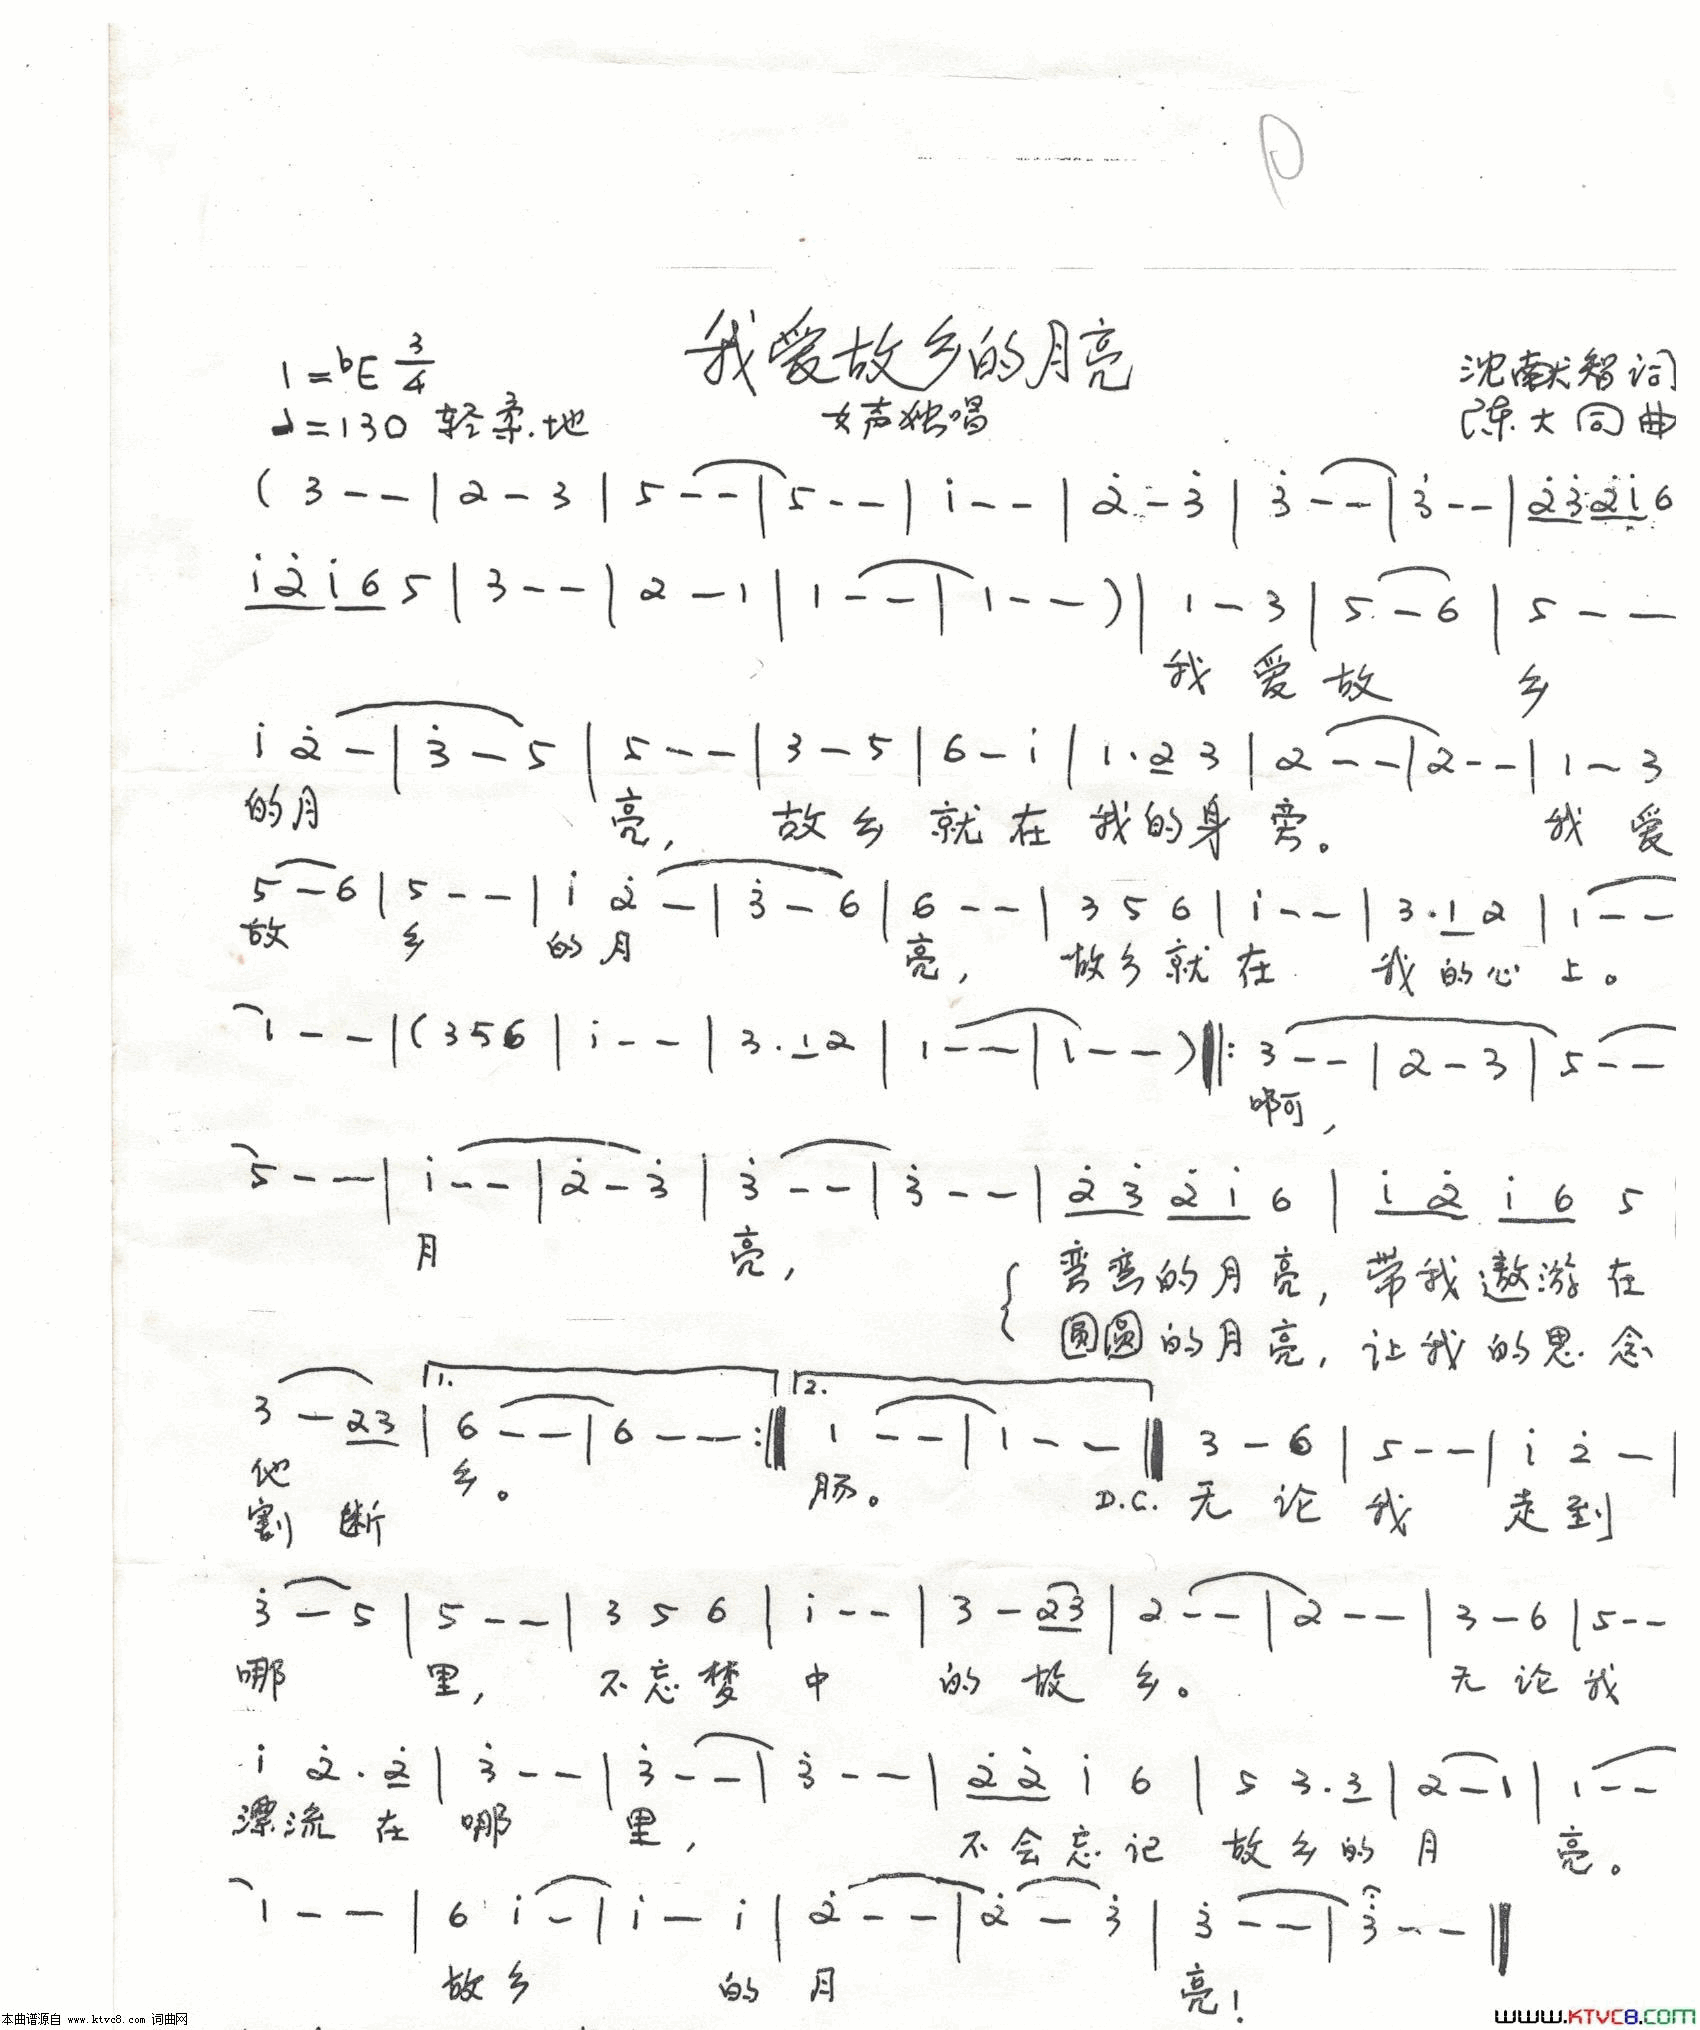 我爱故乡的月亮
1=bE 3/4
沈献智词
♩=130 轻柔地 女声独唱 陈大同曲
( 3 - - | 2 - 3 | 5 - - | 5 - - | i - - | 2̇ - 3̇ | 3̇ - - | 3̇ - - | 2̇3̇ 2̇i 6
i2̇ i6 5 | 3 - - | 2 - 1 | 1 - - | 1 - - ) | 1 - 3 | 5 - 6 | 5 - -
我 爱 故 乡
i 2̇ - | 3̇ - 5 | 5 - - | 3 - 5 | 6 - i | 1. 2 3 | 2 - - | 2 - - | 1 - 3
的月 亮, 故乡 就在 我的身 旁。 我 爱
5 - 6 | 5 - - | i 2̇ - | 3̇ - 6 | 6 - - | 3 5 6 | i - - | 3. 1 2 | 1 - -
故 乡 的月 亮, 故乡就在 我的心上。
1 - - | ( 3 5 6 | i - - | 3. 1 2 | 1 - - | 1 - - ) ‖: 3 - - | 2 - 3 | 5 - -
啊,
5 - - | i - - | 2̇ - 3̇ | 3̇ - - | 3̇ - - | 2̇3̇ 2̇i 6 | i2̇ i6 5
月 亮, 弯弯的月亮, 带我遨游在
圆圆的月亮, 让我的思念
1. 2.
3 - 23 | 6 - - | 6 - - :‖ 1 - - | 1 - - ‖ 3 - 6 | 5 - - | i 2̇ - |
他 乡。 肠。 D.C. 无论 我 走到
割断
3̇ - 5 | 5 - - | 3 5 6 | i - - | 3 - 23 | 2 - - | 2 - - | 3 - 6 | 5 - -
哪 里, 不忘梦 中 的故 乡。 无论我
i 2̇. 2̇ | 3̇ - - | 3̇ - - | 3̇ - - | 2̇2̇ i 6 | 5 3. 3 | 2 - 1 | 1 - -
漂流在 哪 里, 不会忘记 故乡的 月 亮。
1 - - | 6 i - | i - i | 2̇ - - | 2̇ - 3̇ | 3̇ - - | 3̇ - - ‖
故乡 的 月 亮!
本曲谱源自 www.ktvc8.com 词曲网
www.KTVC8.com